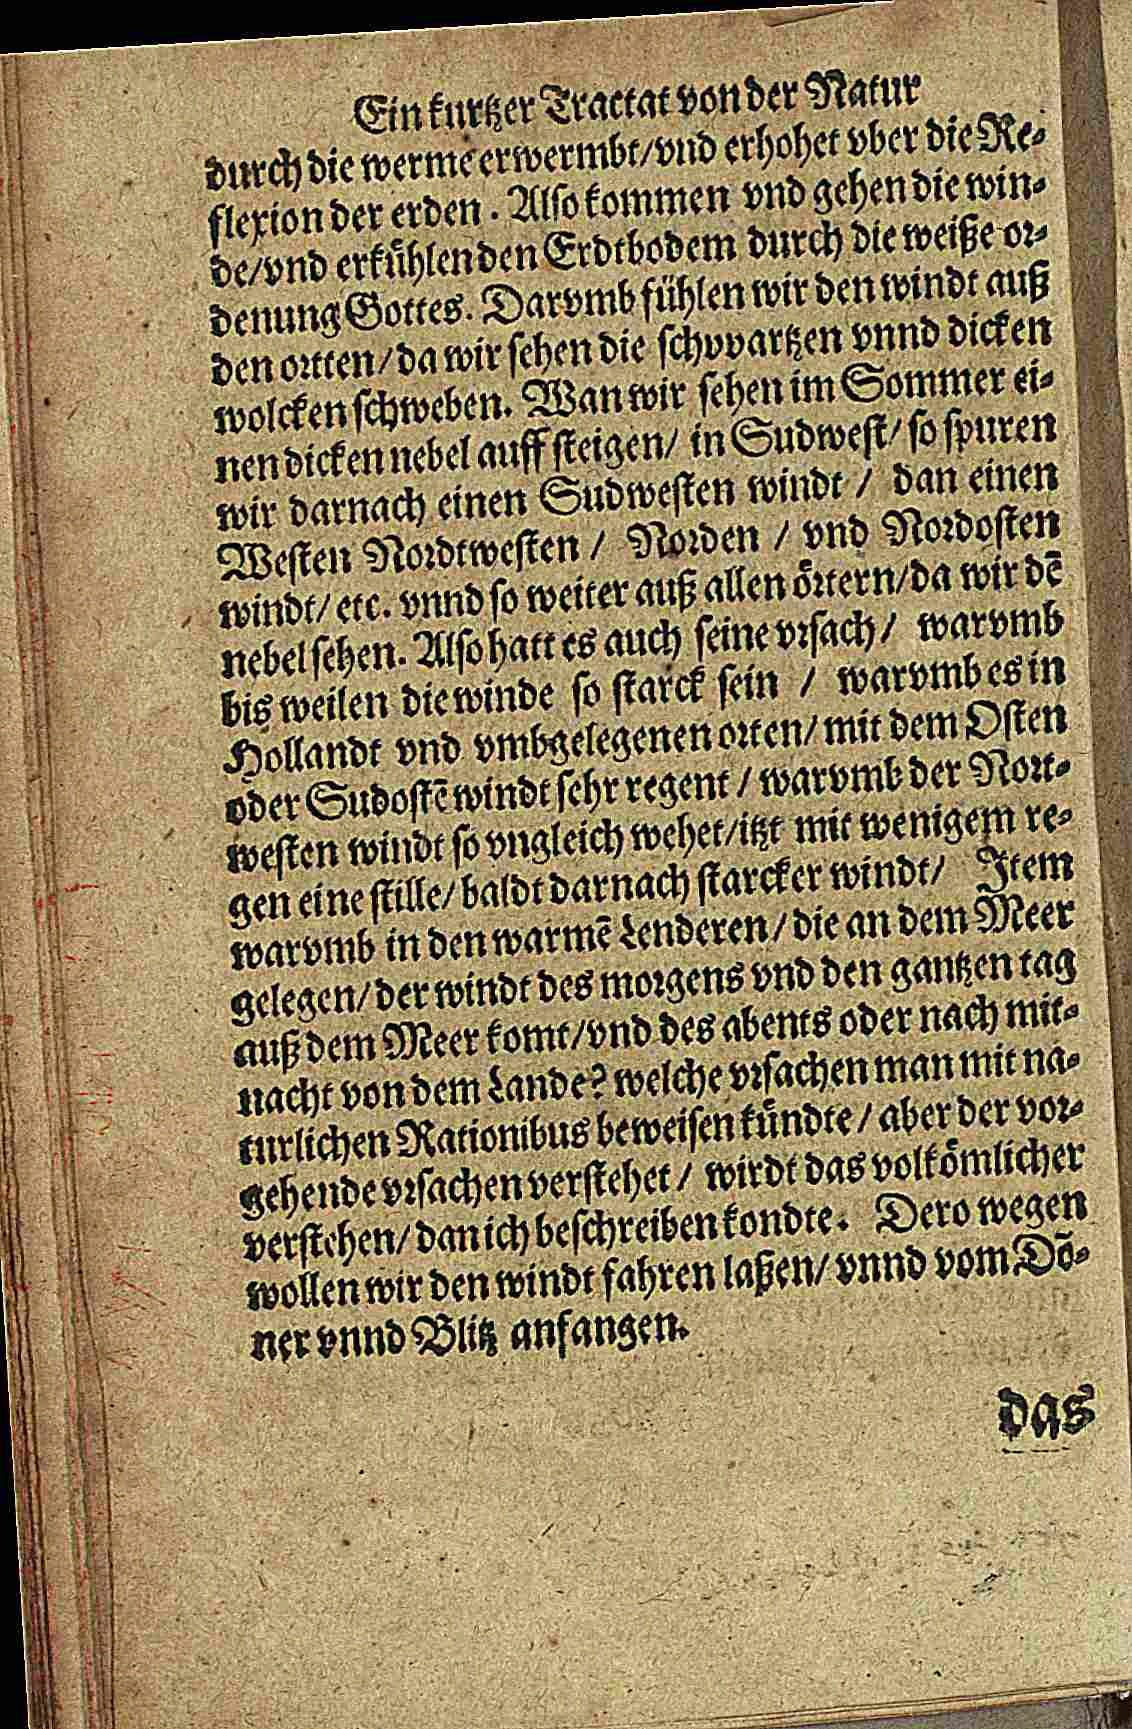 Ein kurtzer Tractat von der Natur
durch die werme erwermbt/vnd erhohet vber die Re-
flexion der erden. Also kommen vnd gehen die win-
de/vnd erkuͤhlen den Erdtbodem durch die weiße or-
denung Gottes. Darvmb fühlen wir den windt auß
den ortten/da wir sehen die schvvartzen vnnd dicken
wolcken schweben. Wan wir sehen im Sommer ei-
nen dicken nebel auff steigen/ in Sudwest/ so spuren
wir darnach einen Sudwesten windt / dan einen
Westen Nordtwesten / Norden / vnd Nordosten
windt/etc. vnnd so weiter auß allen oͤrtern/da wir dē
nebel sehen. Also hatt es auch seine vrsach/ warvmb
bis weilen die winde so starck sein / warvmb es in
Hollandt vnd vmbgelegenen orten/mit dem Osten
oder Sudostē windt sehr regent / warvmb der Nort-
westen windt so vngleich wehet/itzt mit wenigem re-
gen eine stille/baldt darnach starcker windt/ Item
warvmb in den warmē Lenderen/die an dem Meer
gelegen/der windt des morgens vnd den gantzen tag
auß dem Meer komt/vnd des abents oder nach mit-
nacht von dem Lande? welche vrsachen man mit na-
turlichen Rationibus beweisen kuͤndte/aber der vor-
gehende vrsachen verstehet/ wirdt das volkoͤmlicher
verstehen/dan ich beschreiben kondte. Dero wegen
wollen wir den windt fahren laßen/vnnd vom Dō-
ner vnnd Blitz anfangen.
das